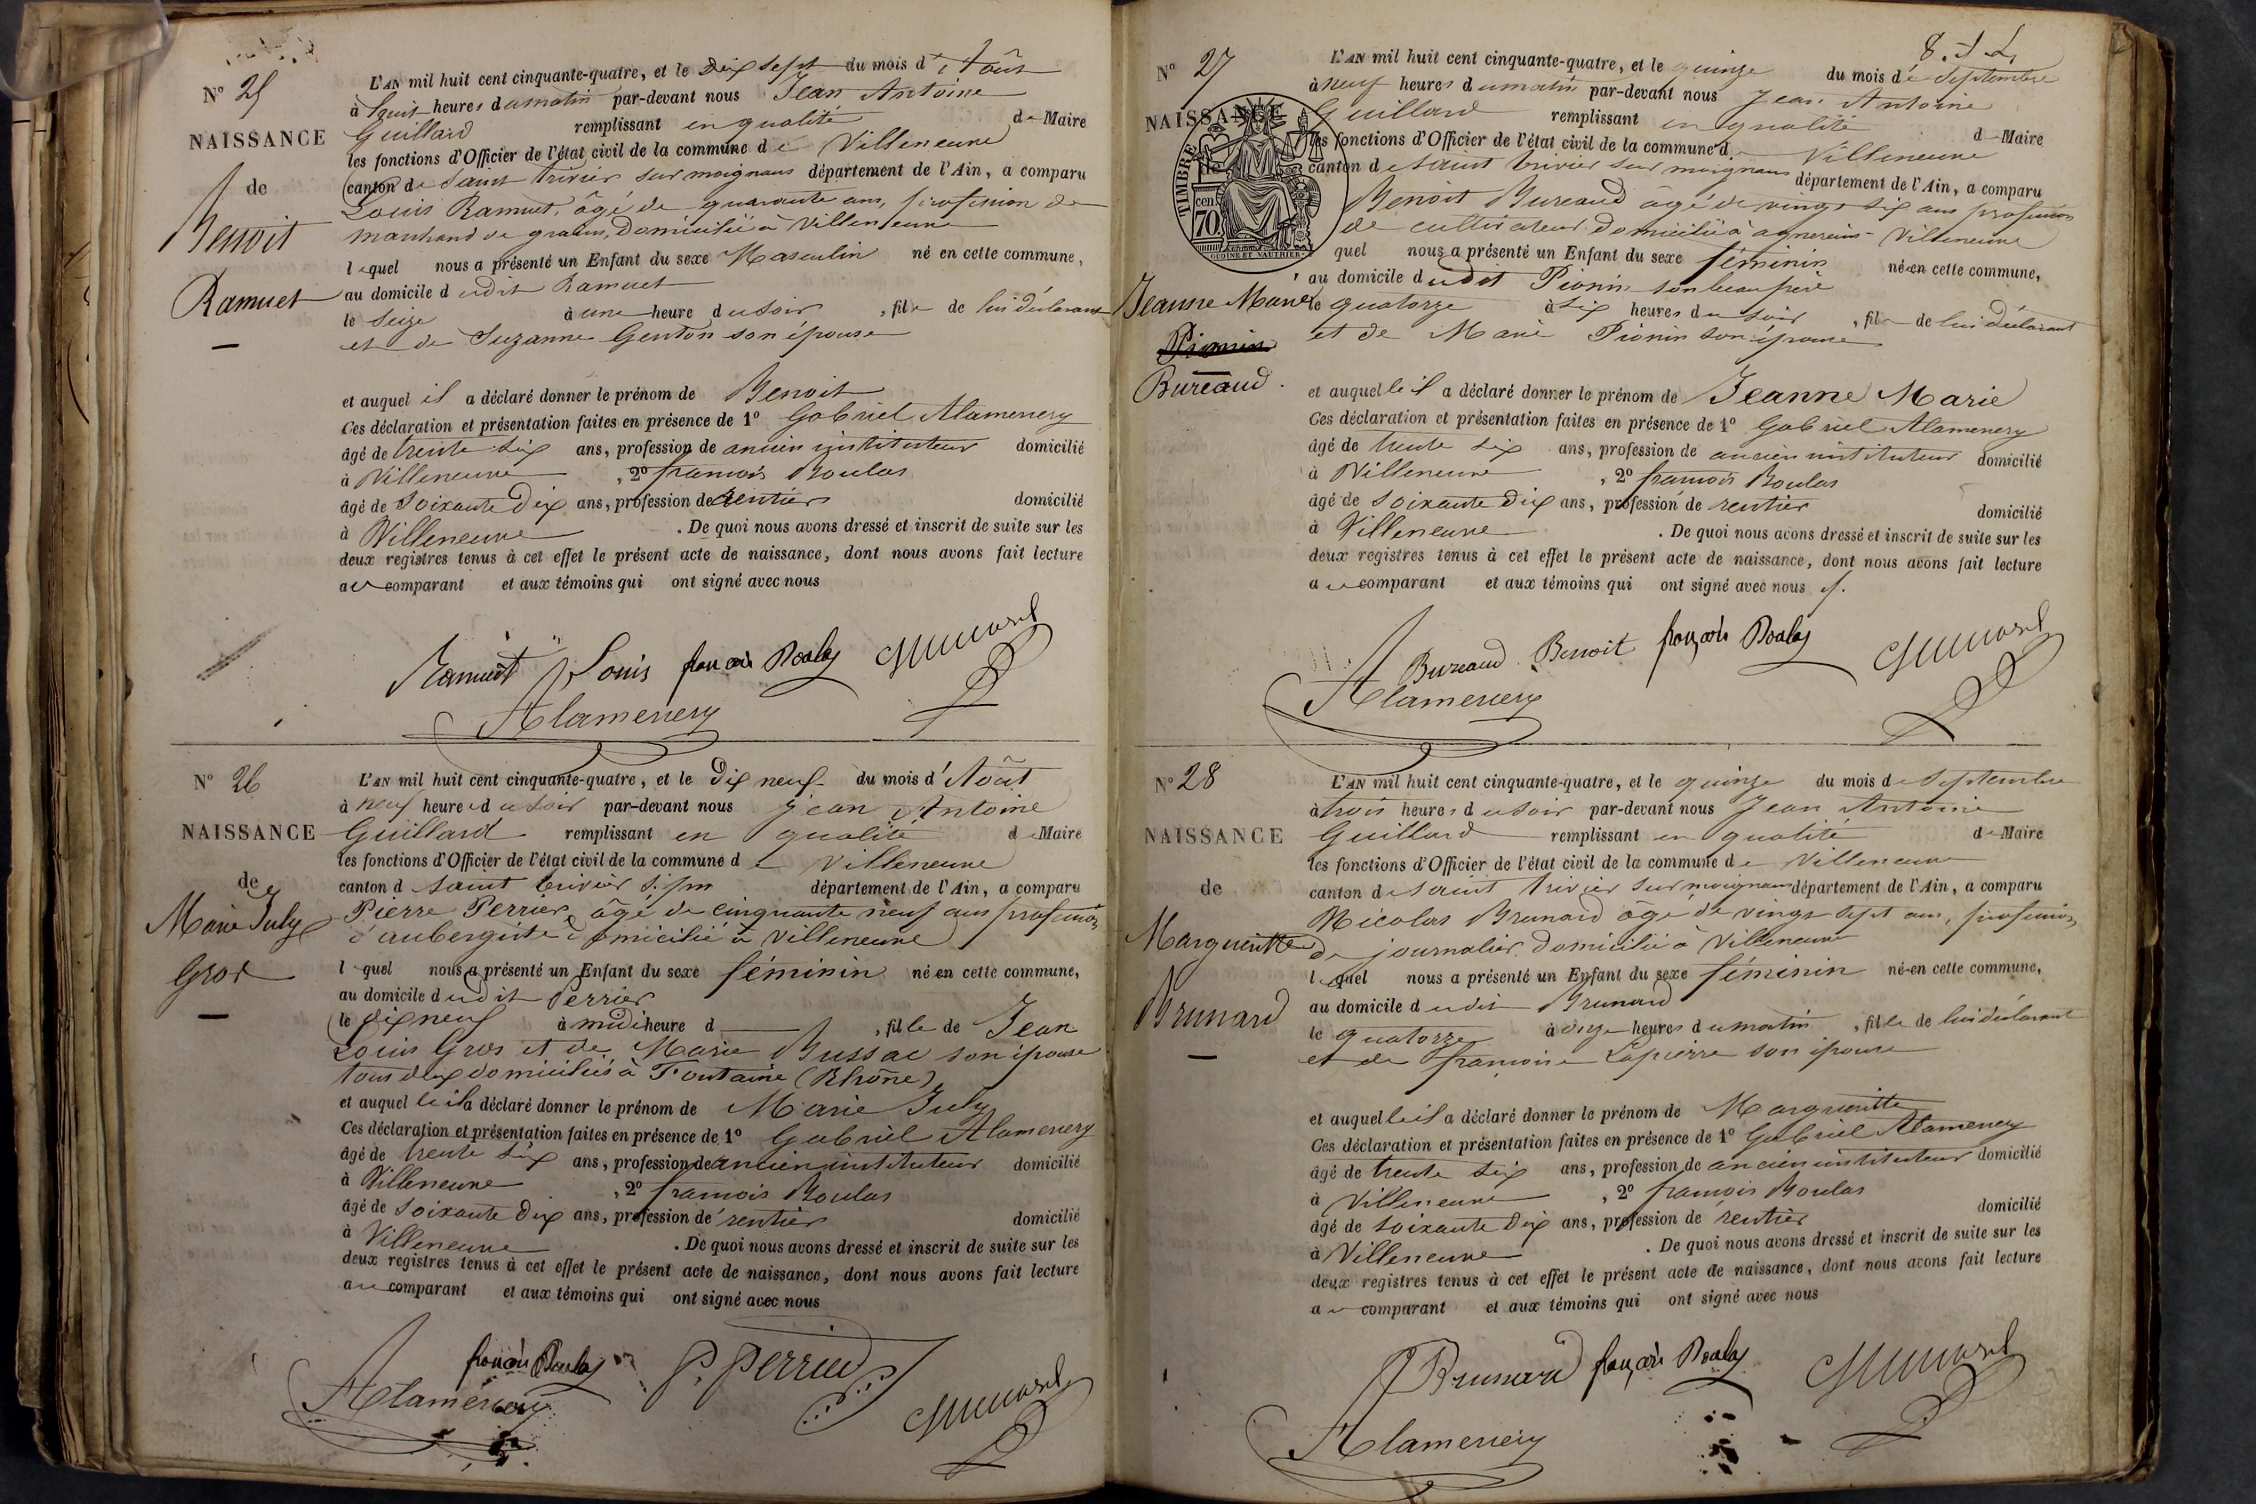 N° 25
NAISSANCE
de
Benoit
Ramuet
L'AN mil huit cent cinquante-quatre, et le Dix sept du mois d'Août
à huit heures du matin par-devant nous Jean Antoine
Guillard remplissant en qualité de Maire
les fonctions d'Officier de l'état civil de la commune de Villeneuve
canton de Saint trivier sur moignans département de l'Ain, a comparu
Louis Ramuet, âgé de quarante ans, profession de
marchand de grains, Domicilié à Villeneuve
lequel nous a présenté un Enfant du sexe Masculin né en cette commune,
au domicile dudit Ramuet
le seize à une heure du soir, fils de lui déclarant
et de Suzanne Genton son épouse
et auquel il a déclaré donner le prénom de Benoit
Ces déclaration et présentation faites en présence de 1° Gabriel Alamenery
âgé de trente six ans, profession de ancien instituteur domicilié
à Villeneuve, 2° francois Boulas
âgé de Soixante Dix ans, profession de rentier domicilié
à Villeneuve. De quoi nous avons dressé et inscrit de suite sur les
deux registres tenus à cet effet le présent acte de naissance, dont nous avons fait lecture
au comparant et aux témoins qui ont signé avec nous
Ramuet Louis françois Boulas Guillard
Alamenery
N° 26
NAISSANCE
de
Marie July
Gros
L'AN mil huit cent cinquante-quatre, et le Dix neuf du mois d'Août
à neuf heures du soir par-devant nous Jean Antoine
Guillard remplissant en qualité de Maire
les fonctions d'Officier de l'état civil de la commune de Villeneuve
canton d saint trivier s. m département de l'Ain, a comparu
Pierre Perrier, âgé de cinquante neuf ans profession
d'aubergiste domicilié à Villeneuve
lequel nous a présenté un Enfant du sexe féminin né en cette commune,
au domicile dudit Perrier
le dix neuf à midi heure d , fille de Jean
Louis Gros et de Marie Bussac son épouse
tous deux domiciliés à Fontaine (Rhône)
et auquel le il a déclaré donner le prénom de Marie July
Ces déclaration et présentation faites en présence de 1° Gabriel Alamenery
âgé de trente six ans, profession de ancien instituteur domicilié
à Villeneuve, 2° francois Boulas
âgé de Soixante Dix ans, profession de rentier domicilié
à Villeneuve. De quoi nous avons dressé et inscrit de suite sur les
deux registres tenus à cet effet le présent acte de naissance, dont nous avons fait lecture
au comparant et aux témoins qui ont signé avec nous
françois Boulas P. Perrier
Alamenery Guillard
N° 27
NAISSANCE
de
TIMBRE
cen 70
OUDINE ET VAUTHIER
Jeanne Marie
Pionin
Bureaud
L'AN mil huit cent cinquante-quatre, et le quinze du mois de Septembre
à neuf heures du matin par-devant nous Jean Antoine
Guillard remplissant en qualité de Maire
les fonctions d'Officier de l'état civil de la commune de Villeneuve
canton de saint trivier sur moignans département de l'Ain, a comparu
Benoit Bureaud âgé de vingt six ans profession
de cultivateur Domicilié à agnereins - Villeneuve
quel nous a présenté un Enfant du sexe féminin né en cette commune,
au domicile dudit Pionin son beau père
le quatorze à six heures du soir, fille de lui déclarant
et de Marie Pionin son épouse
et auquel le il a déclaré donner le prénom de Jeanne Marie
Ces déclaration et présentation faites en présence de 1° Gabriel Alamenery
âgé de trente six ans, profession de ancien instituteur domicilié
à Villeneuve, 2° francois Boulas
âgé de Soixante Dix ans, profession de rentier domicilié
à Villeneuve. De quoi nous avons dressé et inscrit de suite sur les
deux registres tenus à cet effet le présent acte de naissance, dont nous avons fait lecture
au comparant et aux témoins qui ont signé avec nous
Bureaud Benoit françois Boulas Guillard
Alamenery
N° 28
NAISSANCE
de
Margueritte
Brunard
L'AN mil huit cent cinquante-quatre, et le quinze du mois de Septembre
à trois heures du soir par-devant nous Jean Antoine
Guillard remplissant en qualité de Maire
les fonctions d'Officier de l'état civil de la commune de Villeneuve
canton de saint trivier sur moignans département de l'Ain, a comparu
Nicolas Brunard âgé de vingt sept ans, profession
de journalier, Domicilié à Villeneuve
lequel nous a présenté un Enfant du sexe féminin né en cette commune,
au domicile dudit Brunard
le quatorze à onze heures du matin, fille de lui déclarant
et de françoise Lapierre son épouse
et auquel le il a déclaré donner le prénom de Margueritte
Ces déclaration et présentation faites en présence de 1° Gabriel Alamenery
âgé de trente six ans, profession de ancien instituteur domicilié
à Villeneuve, 2° francois Boulas
âgé de soixante Dix ans, profession de rentier domicilié
à Villeneuve. De quoi nous avons dressé et inscrit de suite sur les
deux registres tenus à cet effet le présent acte de naissance, dont nous avons fait lecture
au comparant et aux témoins qui ont signé avec nous
Brunard françois Boulas Guillard
Alamenery